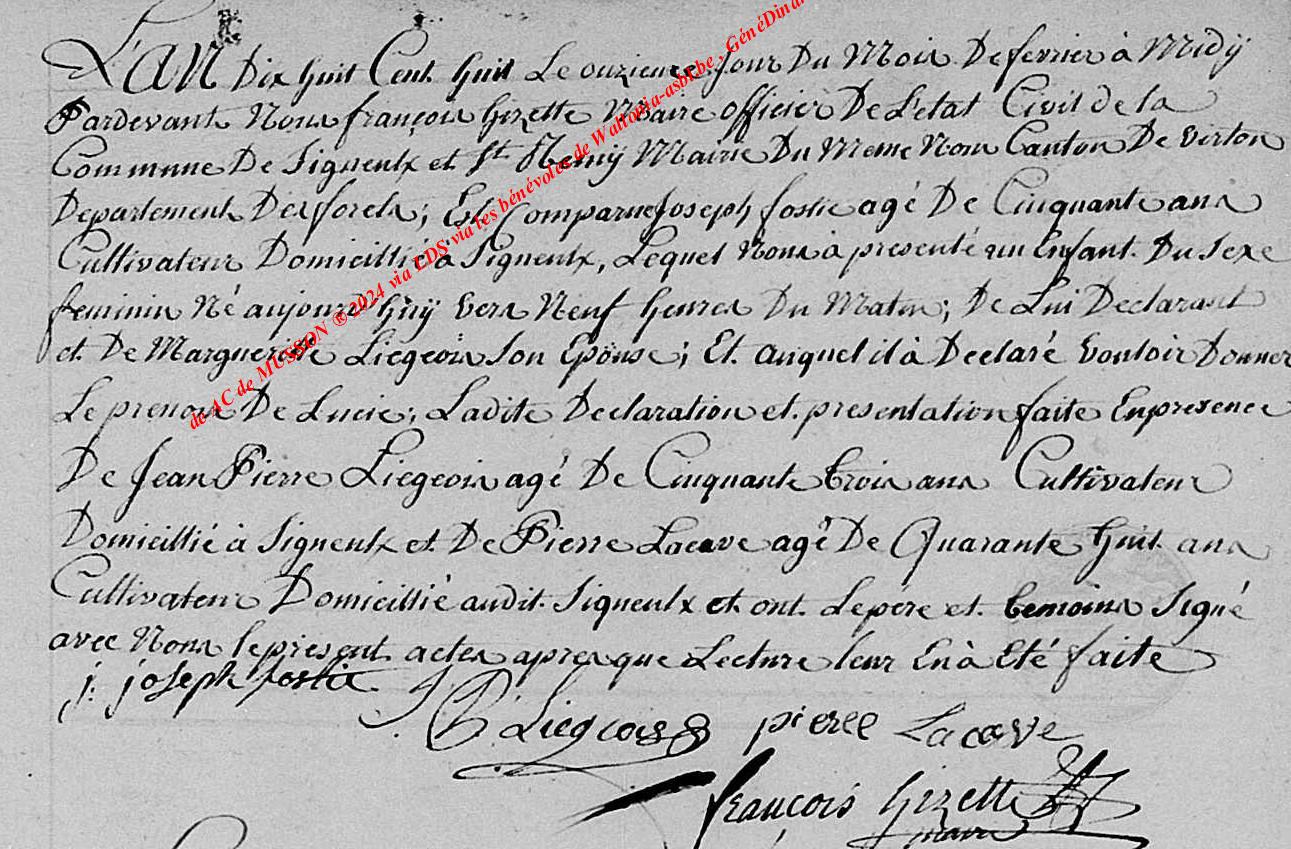 L'AN Dix huit Cent huit Le onzieme Jour Du Mois De fevrier à Midÿ
Pardevant Nous françois Gizette Maire officier De L'état Civil de la
Commune De Signeulx et St Remÿ Mairie Du Meme Nom Canton De Virton
Departement Des forets; Est Comparue Joseph fostie agé De Cinquante ans
Cultivateur Domicillié à Signeulx, Lequel Nous à presenté un Enfant Du Sexe
feminin Né aujourd'hüÿ vers Neuf heures Du Matin; De Lui Declarant
et De Marguerite Liegeois Son Epouse; Et auquel il à Declaré Vouloir Donner
Le prenom De Lucie; Ladite Declaration et presentation faite En presence
De Jean Pierre Liegeois agé De Cinquante trois ans Cultivateur
Domicillié à Signeulx et De Pierre Lacave agé De Quarante huit ans
Cultivateur Domicillié audit Signeulx et ont Le pére et temoins Signé
avec Nous le present actes apres que Lecture leur En à Eté faite
j: joseph fostie
P Liegeois pierre Lacave
françois Gizette
maire
de AC de MUSSON ® 2024 via LDS via les bénévoles de Wallonia-asbl.be , GénéDinan